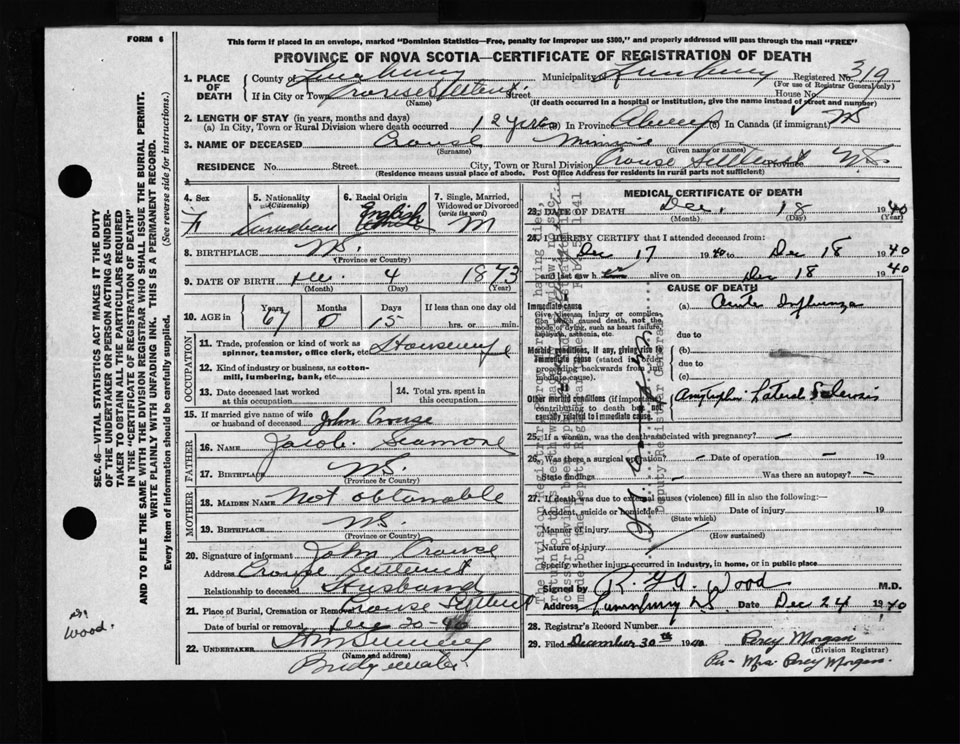 FORM 6
This form if placed in an envelope, marked "Dominion Statistics—Free, penalty for improper use $300," and properly addressed will pass through the mail "FREE"
PROVINCE OF NOVA SCOTIA—CERTIFICATE OF REGISTRATION OF DEATH
1. PLACE OF DEATH County of Lunenburg Municipality Lunenburg Registered No. 319
(For use of Registrar General only)
If in City or Town Crouse Settlement Street House No.
(Name) (If death occurred in a hospital or institution, give the name instead of street and number)
2. LENGTH OF STAY (in years, months and days)
(a) In City, Town or Rural Division where death occurred 12 yrs (b) In Province Always (c) In Canada (if immigrant)
3. NAME OF DECEASED Crouse Minnie
(Surname) (Given name or names)
RESIDENCE No. Street City, Town or Rural Division Crouse Settlement NS.
(Residence means usual place of abode. Post Office Address for residents in rural parts not sufficient)
4. Sex F
5. Nationality (Citizenship) Canadian
6. Racial Origin English
7. Single, Married, Widowed or Divorced (write the word) M
8. BIRTHPLACE NS.
(Province or Country)
9. DATE OF BIRTH Dec. 4 1873
(Month) (Day) (Year)
10. AGE in Years 67 Months 0 Days 15 If less than one day old hrs. or min.
OCCUPATION
11. Trade, profession or kind of work as spinner, teamster, office clerk, etc. Housewife
12. Kind of industry or business, as cotton-mill, lumbering, bank, etc.
13. Date deceased last worked at this occupation
14. Total yrs. spent in this occupation
15. If married give name of wife or husband of deceased John Crouse
FATHER
16. NAME Jacob Seamone
17. BIRTHPLACE NS.
(Province or Country)
MOTHER
18. MAIDEN NAME Not obtainable
19. BIRTHPLACE NS.
(Province or Country)
20. Signature of informant John Crouse
Address Crouse Settlement
Relationship to deceased Husband
21. Place of Burial, Cremation or Removal Crouse Settlement
Date of burial or removal Dec 20-40
22. UNDERTAKER
(Name and address)
Bridgewater
MEDICAL CERTIFICATE OF DEATH
23. DATE OF DEATH Dec. 18 1940
(Month) (Day) (Year)
24. I HEREBY CERTIFY that I attended deceased from:
Dec 17 1940 to Dec 18 1940
and last saw her alive on Dec 18 1940
CAUSE OF DEATH
Immediate cause (a) Acute Influenza
Give disease, injury or complication which caused death, not the mode of dying, such as heart failure, asphyxia, asthenia, etc. due to
Morbid conditions, if any, giving rise to immediate cause (stated in order proceeding backwards from immediate cause). (b)
due to
(c)
Other morbid conditions (if important) contributing to death but not causally related to immediate cause. Amytroph. Lateral Sclerosis
25. If a woman, was the death associated with pregnancy? —
26. Was there a surgical operation? — Date of operation —
State findings — Was there an autopsy? —
27. If death was due to external causes (violence) fill in also the following:—
Accident, suicide or homicide? Date of injury 19
(State which)
Manner of injury
(How sustained)
Nature of injury
Specify whether injury occurred in industry, in home, or in public place
Signed by R. G. A. Wood M.D.
Address Lunenburg NS Date Dec 24 1940
28. Registrar's Record Number
29. Filed December 30th 1940 Percy Morgan
(Division Registrar)
Per- Mrs. Percy Morgan.
SEC. 46—VITAL STATISTICS ACT MAKES IT THE DUTY
OF THE UNDERTAKER OR PERSON ACTING AS UNDER-
TAKER TO OBTAIN ALL THE PARTICULARS REQUIRED
IN THE "CERTIFICATE OF REGISTRATION OF DEATH"
AND TO FILE THE SAME WITH THE DIVISION REGISTRAR WHO SHALL ISSUE THE BURIAL PERMIT.
WRITE PLAINLY WITH UNFADING INK. THIS IS A PERMANENT RECORD.
Every item of information should be carefully supplied. (See reverse side for instructions.)
Wood.
Deputy Registrar General